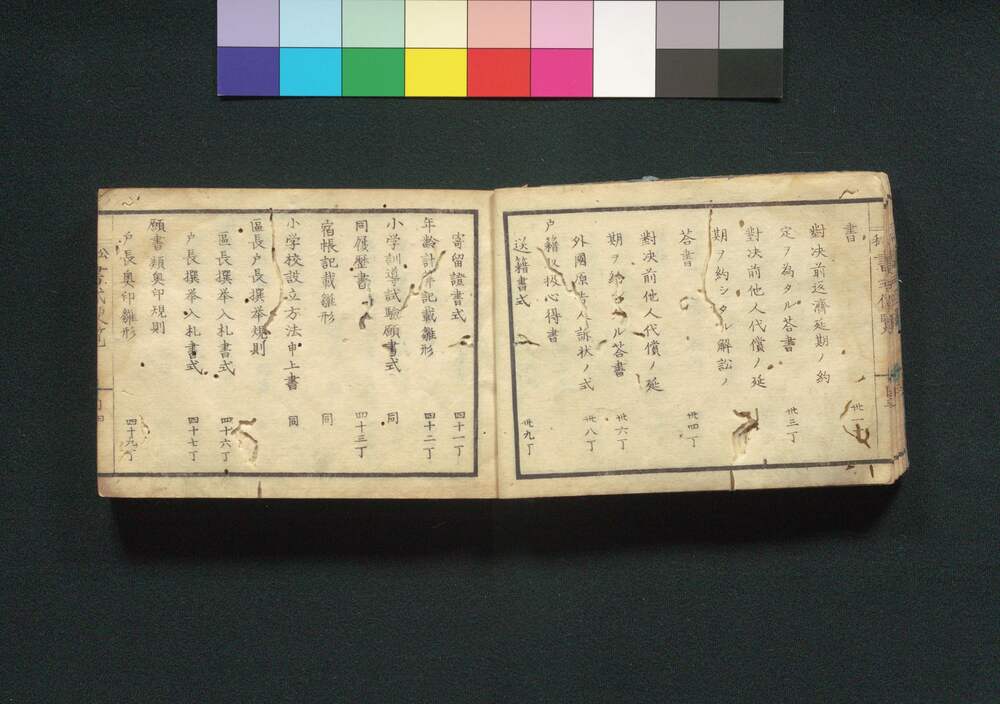 書 丗一丁
對决前返濟延期ノ約
定ヲ為タル答書 丗三丁
對决前他人代償ノ延
期ヲ約シタル解訟ノ
答書 丗四丁
對决前他人代償ノ延
期ヲ約シタル答書 丗六丁
外國原告人訴状ノ式 丗八丁
戸籍取扱心得書
送籍書式 丗九丁
寄留證書式 四十一丁
年齡計算記載雛形 四十二丁
小学訓導試驗願書式 同
同履歴書 四十三丁
宿帳記載雛形 同
小学校設立方法申上書 同
區長戸長撰挙規則
區長撰挙入札書式 四十六丁
戸長撰挙入札書式 四十七丁
願書類奥印規則
戸長奥印雛形 四十九丁